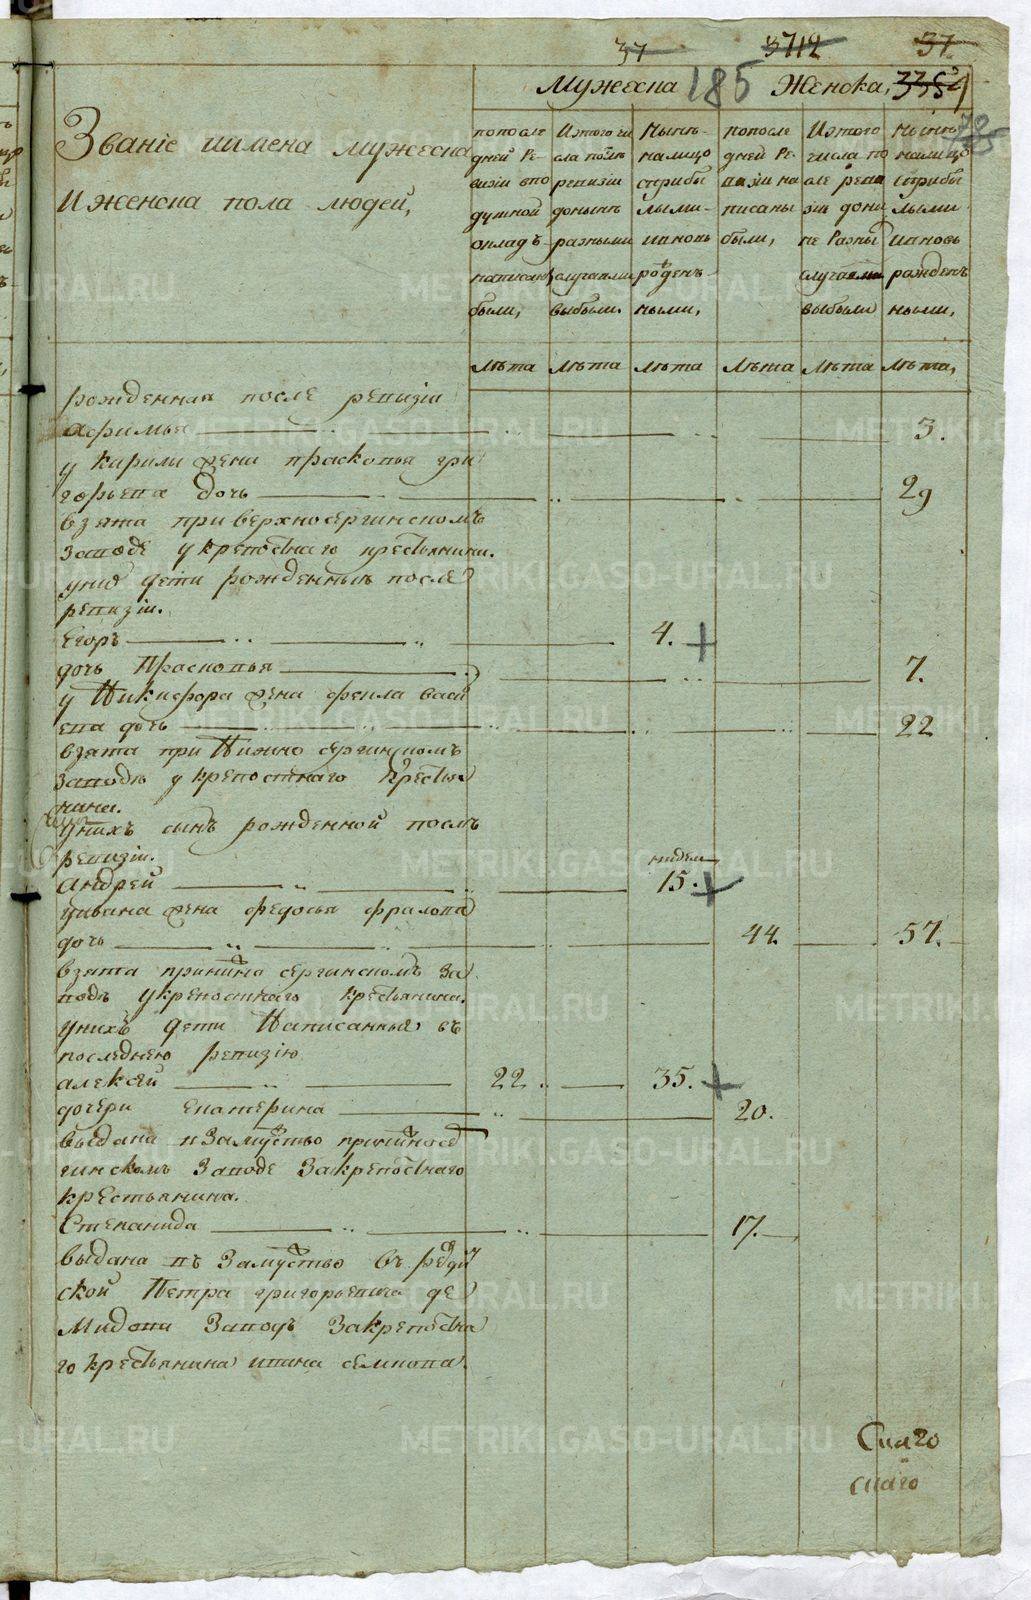 37 3712 37.
Мужеска 185 Женска, 3354
Званіе иимена мужеска
Иженска пола людей,
попосле
дней Ре-
визіи впо
душной
окладъ
написаны
были,
Изтого чи
сла послѣ
ревизіи
донынѣ
разными
случаями
выбыли.
Нынѣ-
налицо
сприбы
лыми-
ивновь
рожден-
ными,
попосле
дней Ре-
визіи на
писаны
были,
Изтого
числа по
сле реви
зіи доны
не Разны
случаями
выбыли
Нынѣ
налицо
сприбы
лыми
ивновь
рожден
ными,
лѣта лѣта лѣта лѣта лѣта лѣта,
рожденная после ревизіи
Афимья 3.
у Кирилы жена прасковья гри
горьева дочь 29
взята приверхносергинскомъ
заводе укрепостнаго крестьянина.
унихъ дети рожденныя после
ревизіи.
Егоръ 4. +
дочь Прасковья 7.
у Никифора жена фекла васи
ева дочь 22
взята при Нижно сергинскомъ
заводѣ укрепостнаго Крестья
нина.
унихъ сынъ рожденной послѣ
ревизіи.
Андрей 15. +
уивана жена федосья фролова
дочь 44. 57.
взята принижно сергинскомъ за
водѣ укрепостнаго крестьянина.
унихъ дети Написанныя въ
последнею ревизію
алексей 22 35. +
дочери екатерина 20.
выдана взамуство принижносер
гинскомъ Заводе Закрепостнаго
крестьянина.
Степанида 17.
выдана въ Замуство въ
ской Петра григорьевича де
Мидова Заводъ Закрепостна
го крестьянина ивана семкова.
Онаго
онаго
METRIKI.GASO-URAL.RU